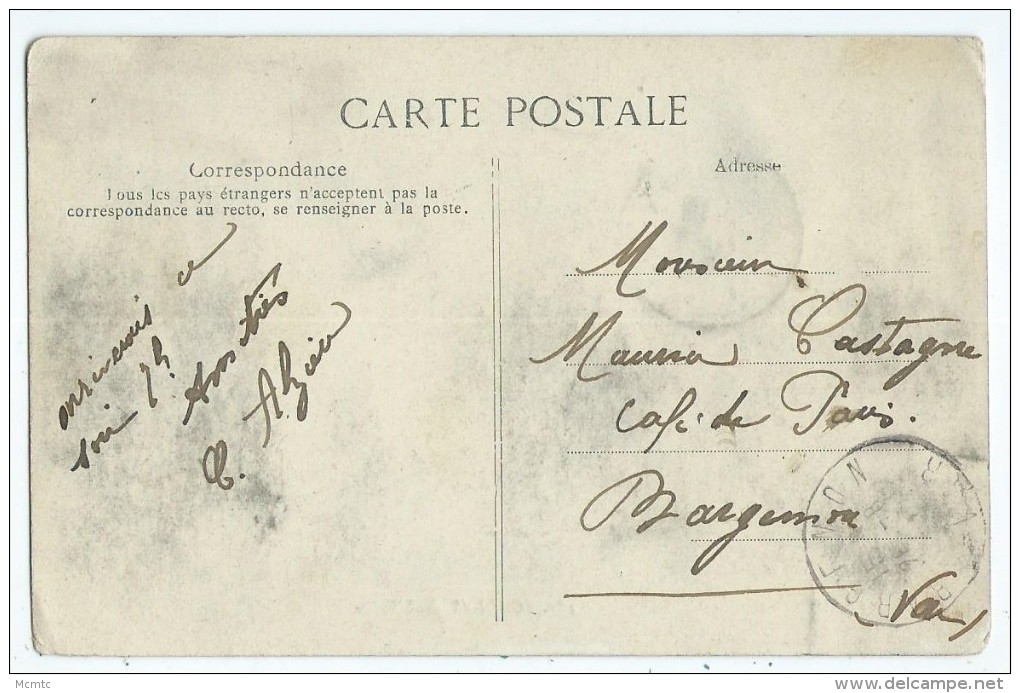 CARTE POSTALE
Correspondance
Tous les pays étrangers n'acceptent pas la
correspondance au recto, se renseigner à la poste.
ce
soir 7h
Amitiés
C. Alziéu
Adresse
Monsieur
Castagne
Café de Paris.
Bargemon
(Var)
BARGEMON VAR
Mcmtc
www.delcampe.net